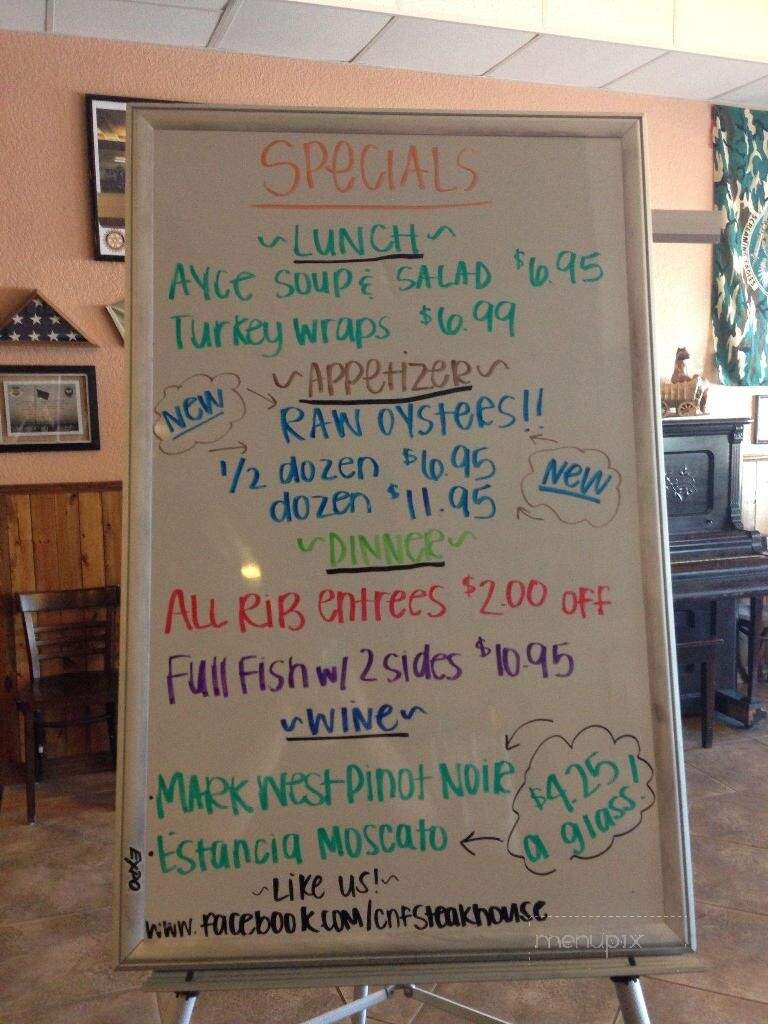 SPECIALS
~LUNCH~
AYCE SOUP & SALAD $6.95
Turkey Wraps $6.99
~APPETIZER~
NEW
RAW OYSTERS!!
1/2 dozen $6.95
dozen $11.95
NEW
~DINNER~
ALL RIB entrees $2.00 OFF
Full Fish w/ 2 sides $10.95
~WINE~
·MARK West Pinot Noir
$4.25!
a glass!
·Estancia Moscato
~Like us!~
www.facebook.com/cnfsteakhouse
EXPO
menupix
SCREAMING